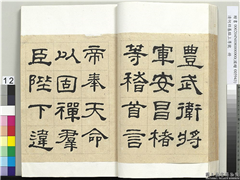 豊武衛將
軍安昌楮
等稽首言
帝奉天命
以固禪羣
臣陛下違
12